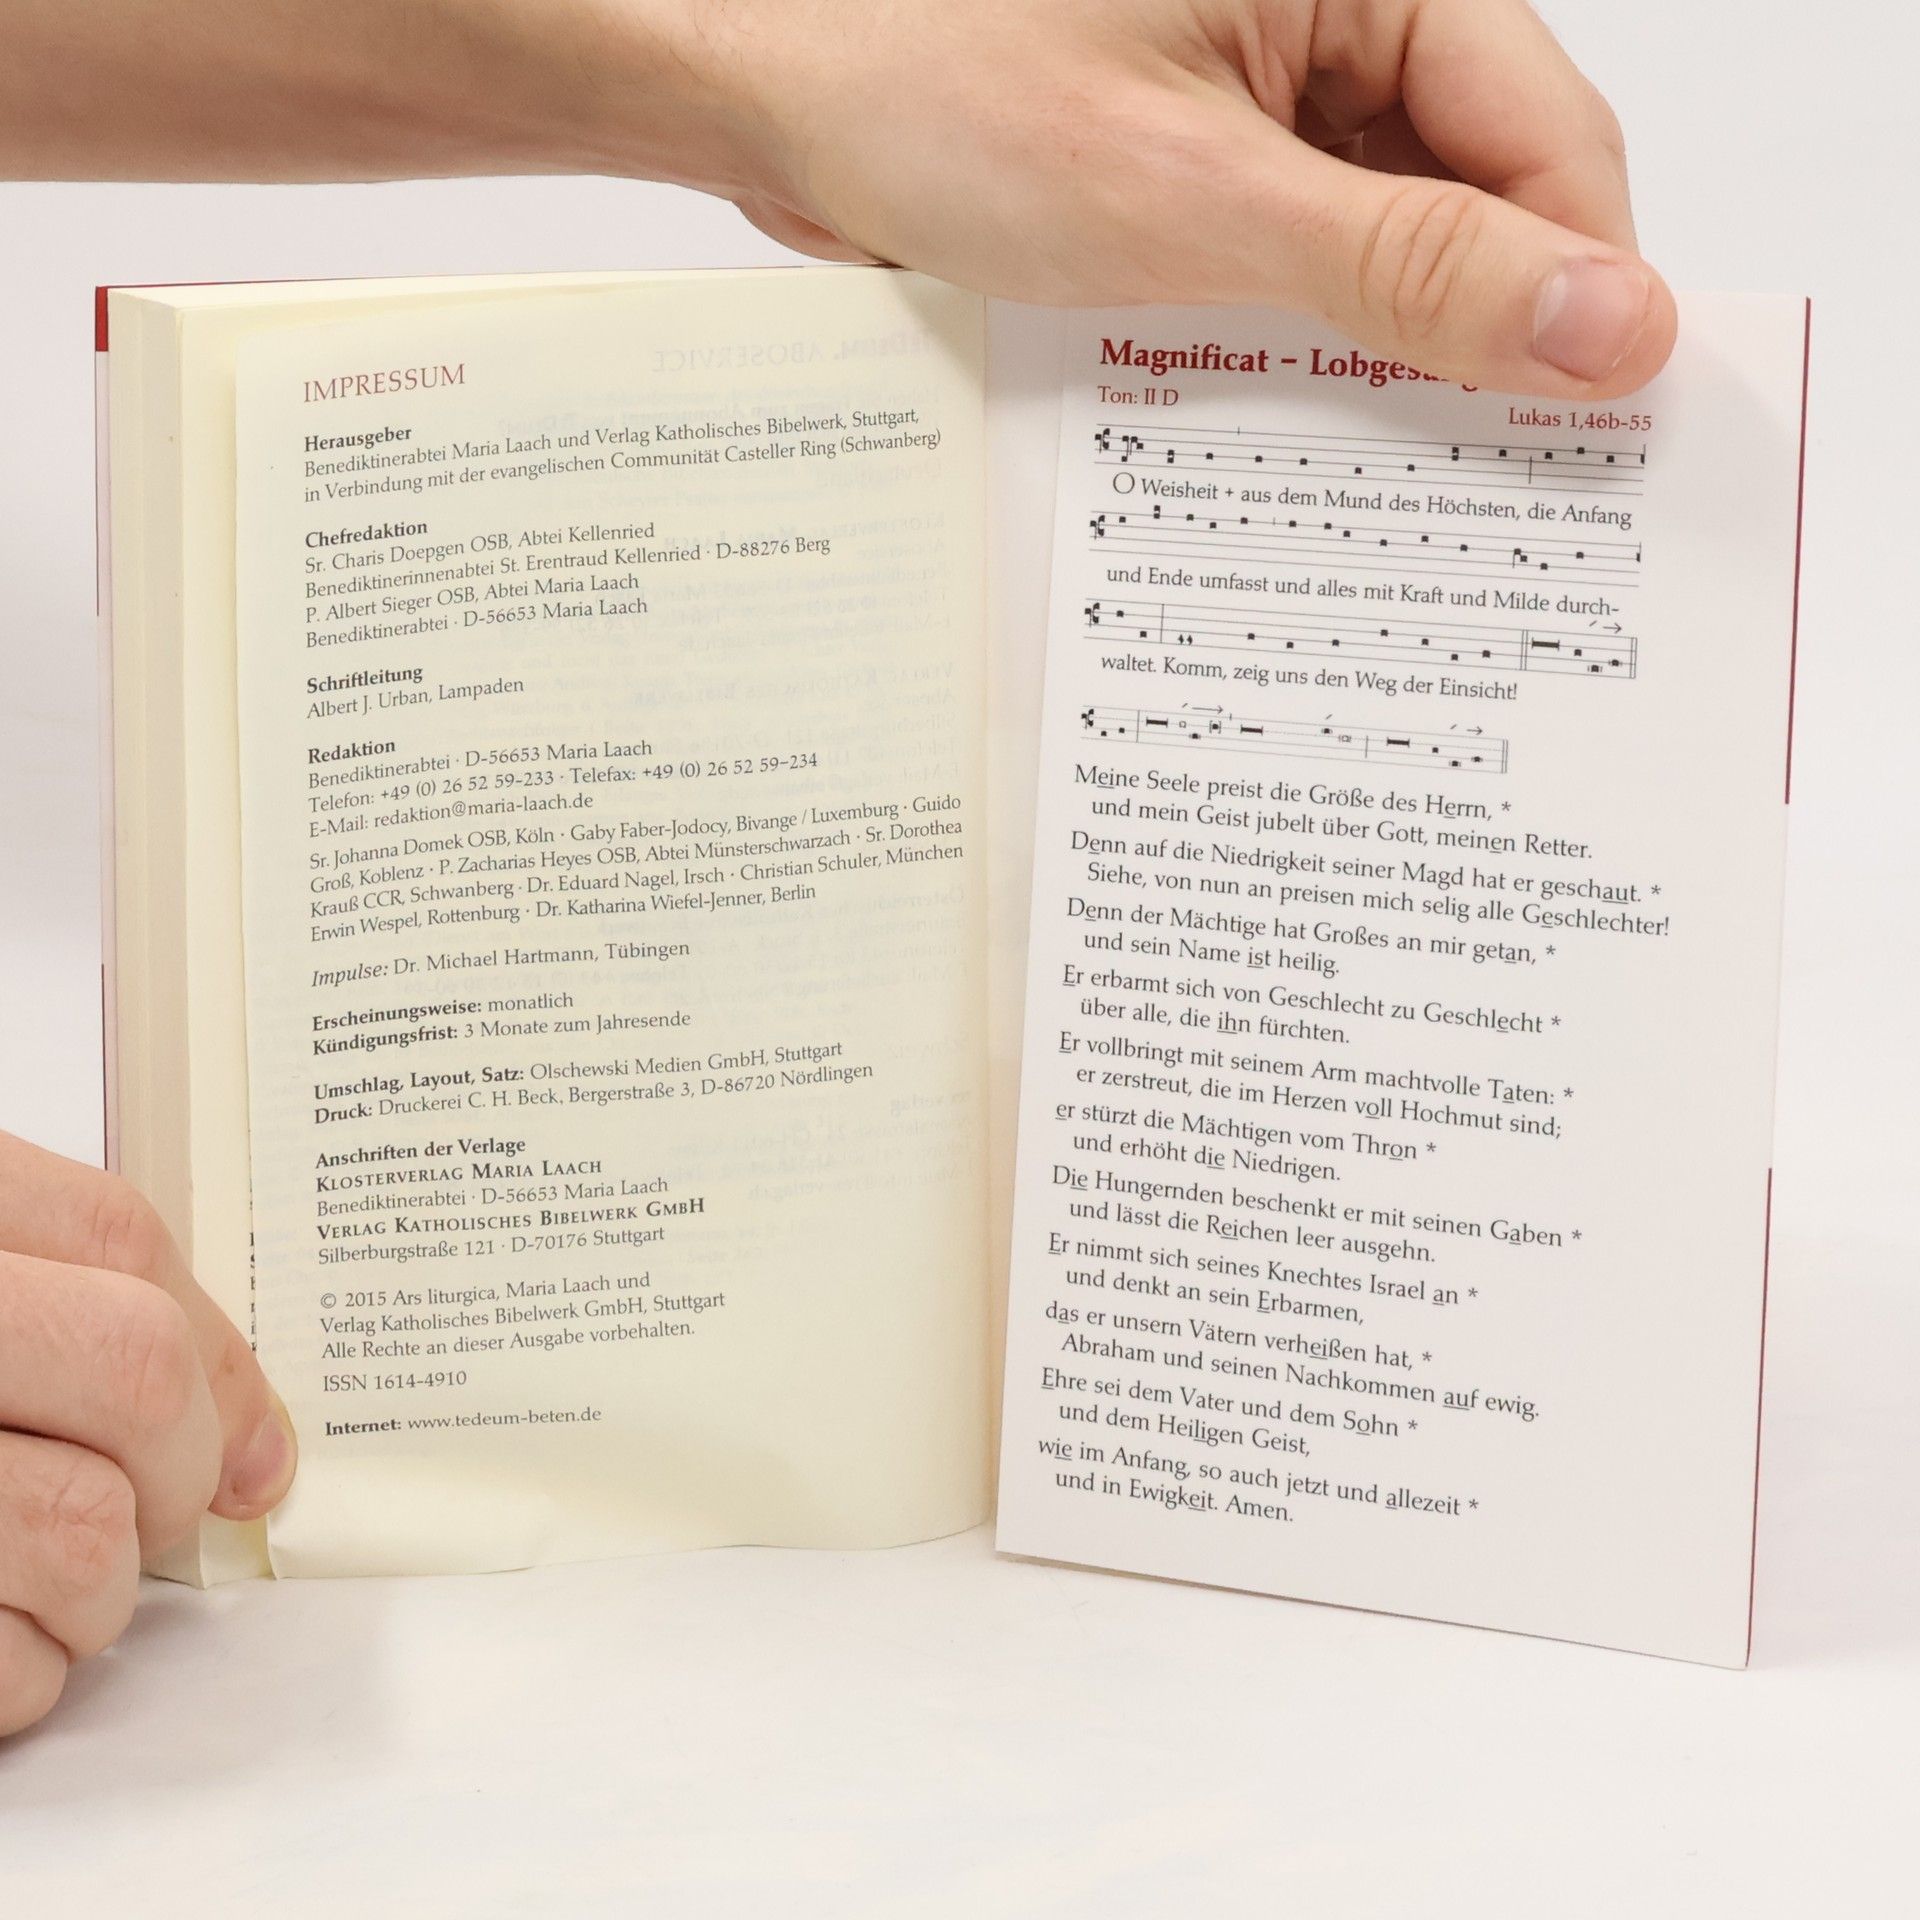 IMPRESSUM
Herausgeber
Benediktinerabtei Maria Laach und Verlag Katholisches Bibelwerk, Stuttgart,
in Verbindung mit der evangelischen Communität Casteller Ring (Schwanberg)
Chefredaktion
Sr. Charis Doepgen OSB, Abtei Kellenried
Benediktinerinnenabtei St. Erentraud Kellenried · D-88276 Berg
P. Albert Sieger OSB, Abtei Maria Laach
Benediktinerabtei · D-56653 Maria Laach
Schriftleitung
Albert J. Urban, Lampaden
Redaktion
Benediktinerabtei · D-56653 Maria Laach
Telefon: +49 (0) 26 52 59-233 · Telefax: +49 (0) 26 52 59-234
E-Mail: redaktion@maria-laach.de
Sr. Johanna Domek OSB, Köln · Gaby Faber-Jodocy, Bivange / Luxemburg · Guido
Groß, Koblenz · P. Zacharias Heyes OSB, Abtei Münsterschwarzach · Sr. Dorothea
Krauß CCR, Schwanberg · Dr. Eduard Nagel, Irsch · Christian Schuler, München
Erwin Wespel, Rottenburg · Dr. Katharina Wiefel-Jenner, Berlin
Impulse: Dr. Michael Hartmann, Tübingen
Erscheinungsweise: monatlich
Kündigungsfrist: 3 Monate zum Jahresende
Umschlag, Layout, Satz: Olschewski Medien GmbH, Stuttgart
Druck: Druckerei C. H. Beck, Bergerstraße 3, D-86720 Nördlingen
Anschriften der Verlage
KLOSTERVERLAG MARIA LAACH
Benediktinerabtei · D-56653 Maria Laach
VERLAG KATHOLISCHES BIBELWERK GMBH
Silberburgstraße 121 · D-70176 Stuttgart
© 2015 Ars liturgica, Maria Laach und
Verlag Katholisches Bibelwerk GmbH, Stuttgart
Alle Rechte an dieser Ausgabe vorbehalten.
ISSN 1614-4910
Internet: www.tedeum-beten.de
Magnificat – Lobgesang
Ton: II D
Lukas 1,46b-55
O Weisheit + aus dem Mund des Höchsten, die Anfang
und Ende umfasst und alles mit Kraft und Milde durch-
waltet. Komm, zeig uns den Weg der Einsicht!
Meine Seele preist die Größe des Herrn, *
und mein Geist jubelt über Gott, meinen Retter.
Denn auf die Niedrigkeit seiner Magd hat er geschaut. *
Siehe, von nun an preisen mich selig alle Geschlechter!
Denn der Mächtige hat Großes an mir getan, *
und sein Name ist heilig.
Er erbarmt sich von Geschlecht zu Geschlecht *
über alle, die ihn fürchten.
Er vollbringt mit seinem Arm machtvolle Taten: *
er zerstreut, die im Herzen voll Hochmut sind;
er stürzt die Mächtigen vom Thron *
und erhöht die Niedrigen.
Die Hungernden beschenkt er mit seinen Gaben *
und lässt die Reichen leer ausgehn.
Er nimmt sich seines Knechtes Israel an *
und denkt an sein Erbarmen,
das er unsern Vätern verheißen hat, *
Abraham und seinen Nachkommen auf ewig.
Ehre sei dem Vater und dem Sohn *
und dem Heiligen Geist,
wie im Anfang, so auch jetzt und allezeit *
und in Ewigkeit. Amen.